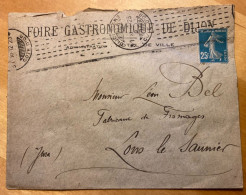 FOIRE GASTRONOMIQUE DE DIJON
DE VILLE
25
Monsieur Léon Bel
Fabricant de Fromages
Lons le Saunier
(Jura)